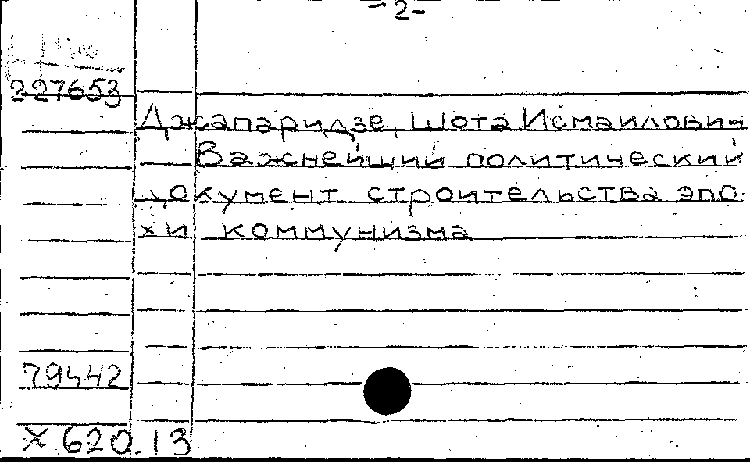 -2-
227653
Джапаридзе, Шота Исмаилович
Важнейший политический
документ строительства эпо
хи коммунизма
79442
X 620.13